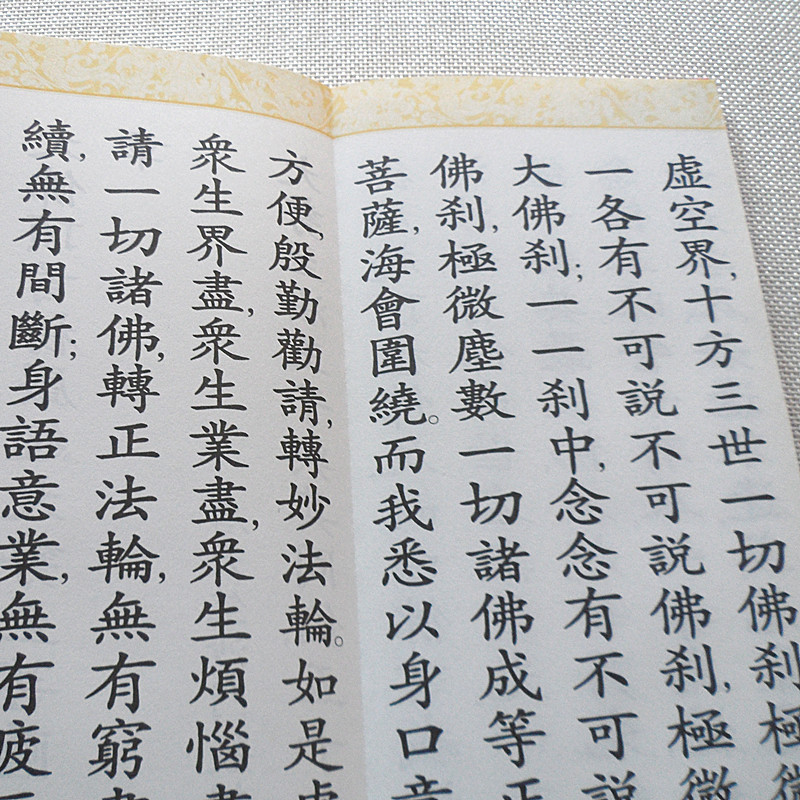 虛空界,十方三世一切佛刹,極微
一各有不可說不可說佛刹,極微
大佛刹;一一刹中,念念有不可說
佛刹,極微塵數一切諸佛成等正
菩薩,海會圍繞。而我悉以身口意
方便,殷勤勸請,轉妙法輪。如是
衆生界盡,衆生業盡,衆生煩惱
請一切諸佛,轉正法輪,無有窮
續,無有間斷;身語意業,無有疲